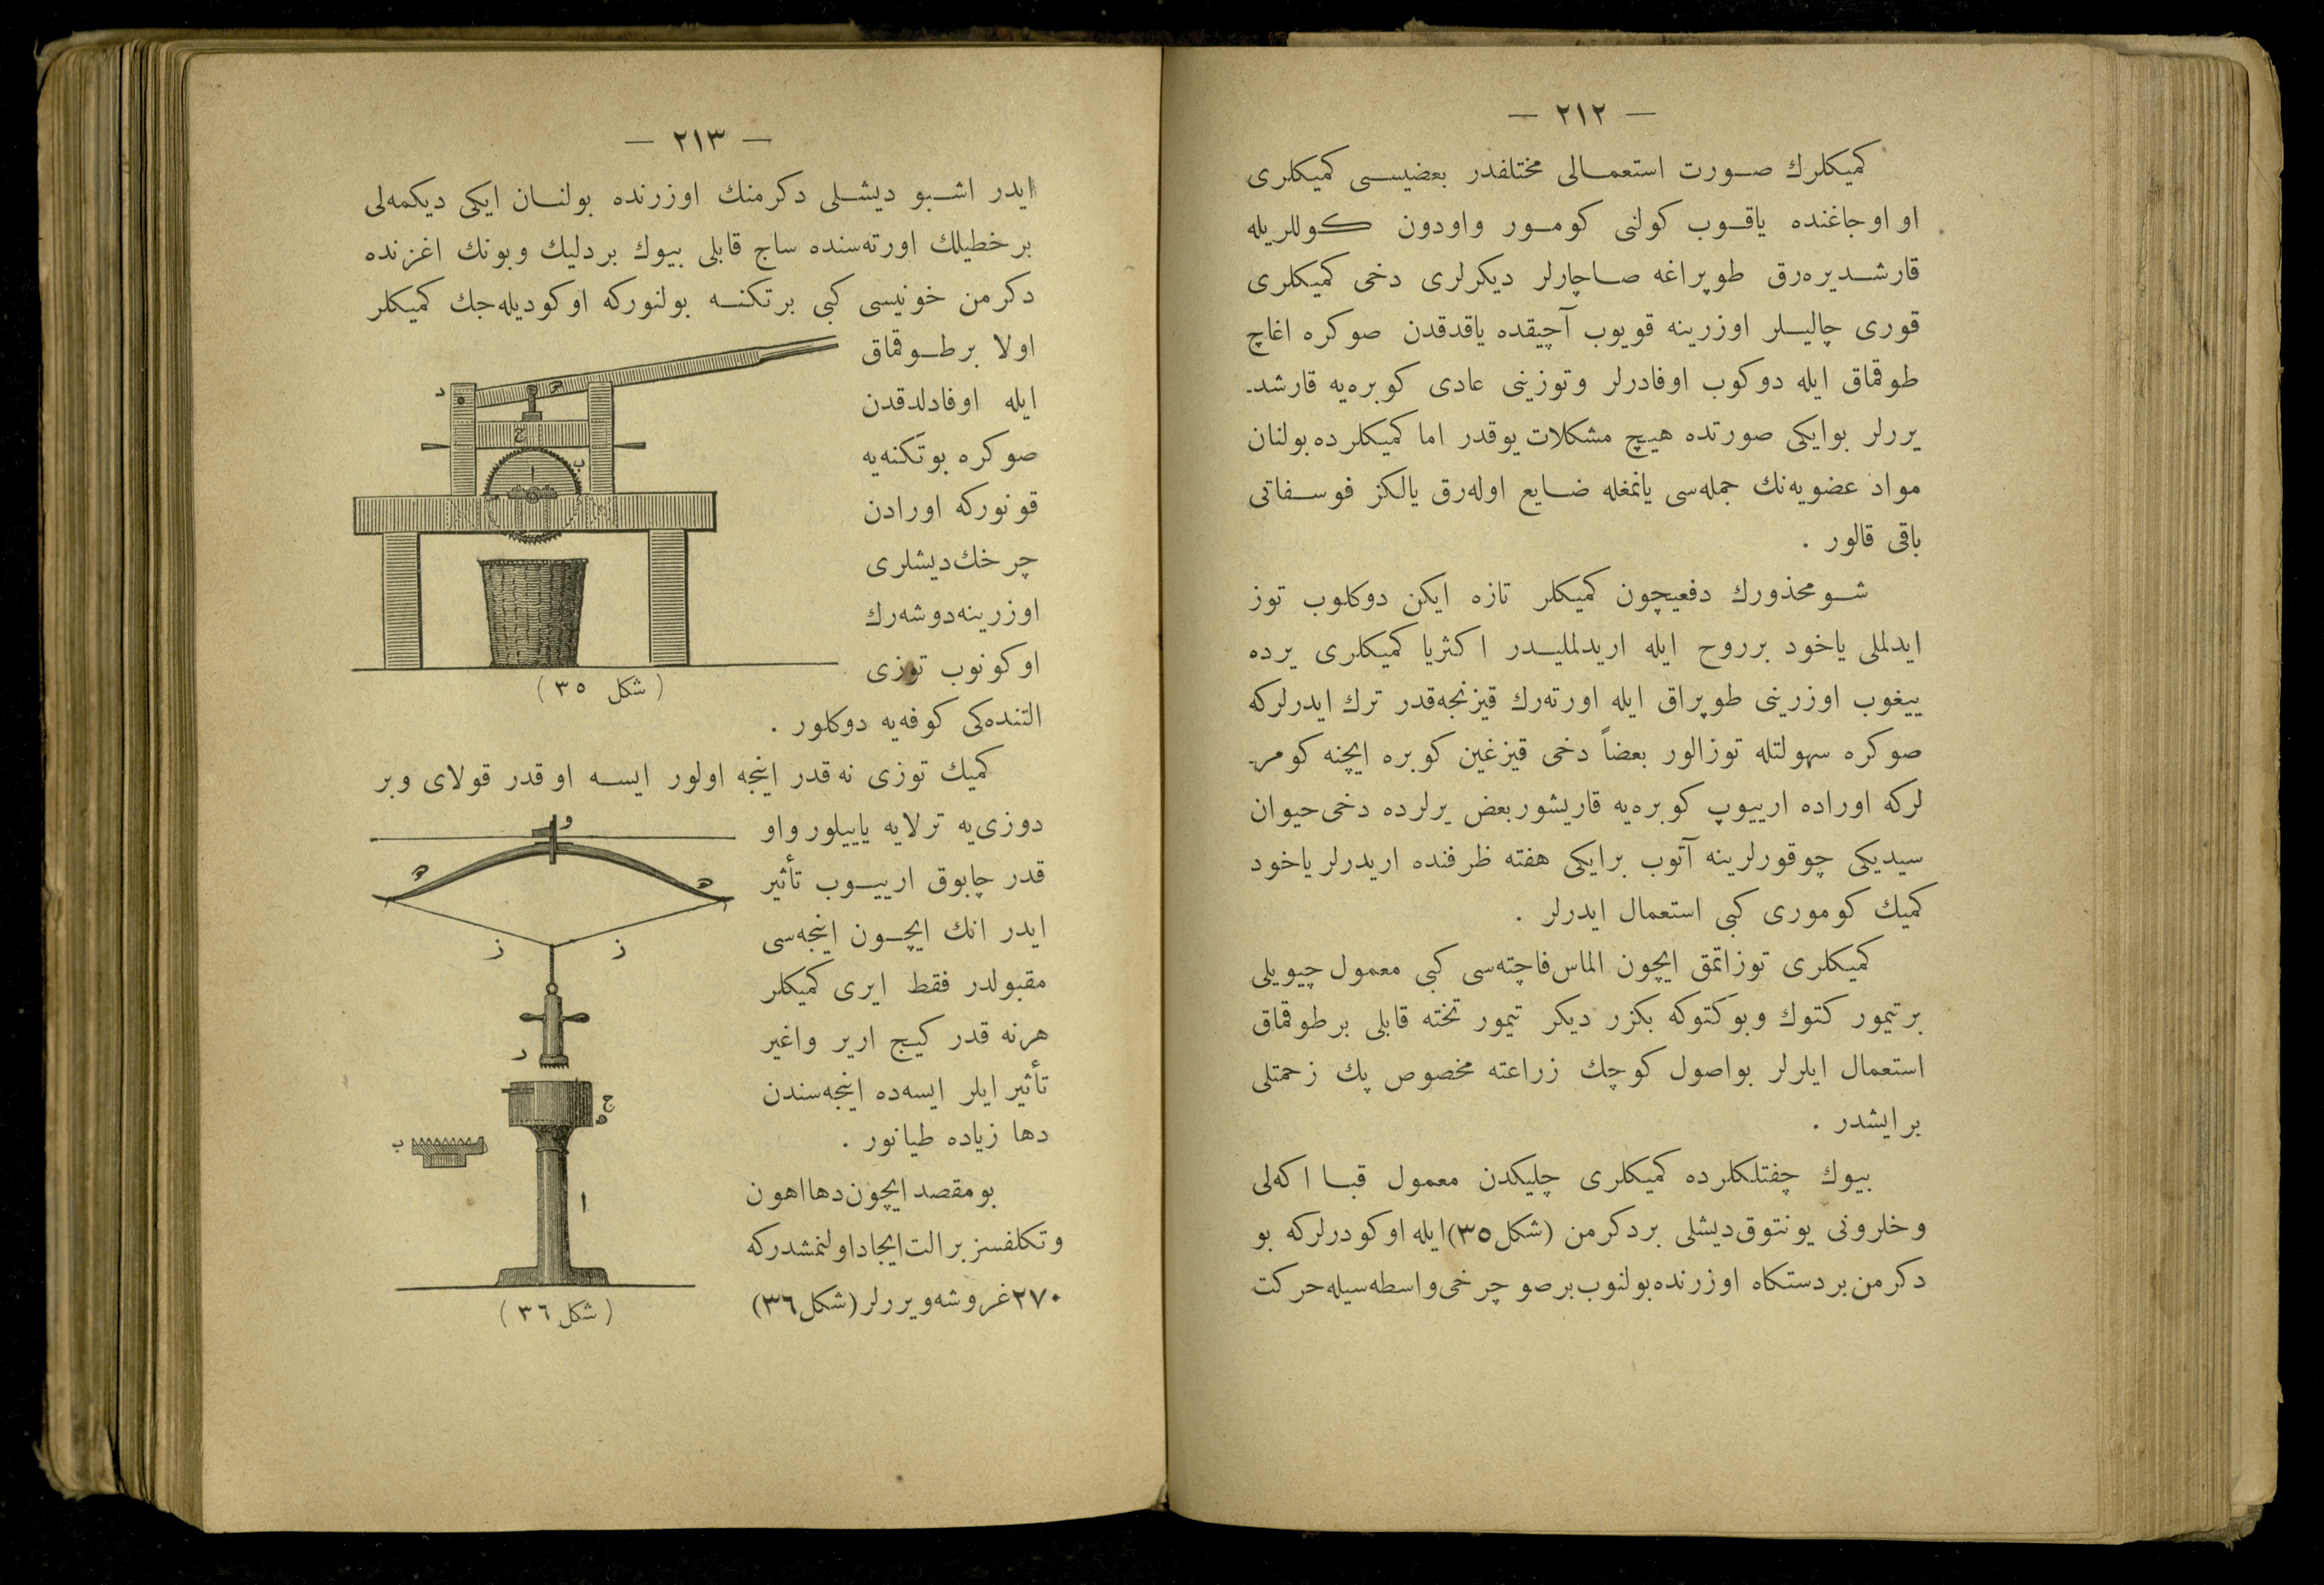 — ٢١٢ —
كميكلرك صورت استعمالی مختلفدر بعضیسی كميكلری
او اوجاغنده یاقوب كولنی كومور واودون كوللریله
قارشدیره‌رق طوپراغه صاچارلر دیكرلری دخی كميكلری
قوری چالیلر اوزرینه قویوب آچیقده یاقدقدن صوكره اغاچ
طوقماق ایله دوكوب اوفادرلر وتوزینی عادی كوبره‌یه قارشد۔
یررلر بوایكی صورتده هیچ مشكلات یوقدر اما كميكلرده بولنان
مواد عضویه‌نك جمله‌سی یانمغله ضایع اوله‌رق یالكز فوسفاتی
باقی قالور .
شو محذورك دفعیچون كميكلر تازه ایكن دوكلوب توز
ایدلملی یاخود برروح ایله اریدلملیدر اكثریا كميكلری یرده
ییغوب اوزرینی طوپراق ایله اورته‌رك قیزنجه‌قدر ترك ایدرلركه
صوكره سهولتله توزالور بعضاً دخی قیزغین كوبره ایچنه كومر۔
لركه اوراده ارییوپ كوبره‌یه قاریشور بعض یرلرده دخی حیوان
سیدیكی چوقورلرینه آتوب برایكی هفته ظرفنده اریدرلر یاخود
كميك كوموری كبی استعمال ایدرلر .
كميكلری توزاتمق ایچون الماس فاچته‌سی كبی معمول چیویلی
برتیمور كتوك وبوكتوكه بكزر دیكر تیمور تخته قابلی برطوقماق
استعمال ایلرلر بواصول كوچك زراعته مخصوص پك زحمتلی
برایشدر .
بیوك چفتلكلرده كميكلری چلیكدن معمول قبا اكه‌لی
وخلرونی یونتوق دیشلی بردكرمن (شكل ٣٥) ایله اوكودرلركه بو
دكرمن بردستكاه اوزرنده بولنوب برصو چرخی واسطه‌سیله حركت
— ٢١٣ —
ایدر اشبو دیشلی دكرمنك اوزرنده بولنان ایكی دیكمه‌لی
برخطیلك اورته‌سنده ساج قابلی بیوك بردلیك وبونك اغزنده
دكرمن خونیسی كبی برتكنه بولنوركه اوكودیله‌جك كميكلر
اولا برطوقماق
ایله اوفادلدقدن
صوكره بوتكنه‌یه
قونوركه اورادن
چرخك دیشلری
اوزرینه دوشه‌رك
اوكونوب توزی
التنده‌كی كوفه‌یه دوكلور .
د
ه
ج
ب
ا
(شكل ٣٥)
كميك توزی نه قدر اینجه اولور ایسه اوقدر قولای وبر
دوزی‌یه ترلایه یاییلور واو
قدر چابوق ارییوب تأثیر
ایدر انك ایچون اینجه‌سی
مقبولدر فقط ایری كميكلر
هرنه قدر كیج اریر واغیر
تأثیر ایلر ایسه‌ده اینجه‌سندن
دها زیاده طیانور .
بومقصد ایچون دها اهون
وتكلفسز برالت ایجاد اولنمشدركه
٢٧٠ غروشه ویررلر (شكل ٣٦)
و
ه ه
ز ز
ر
ج
ب
ا
(شكل ٣٦)